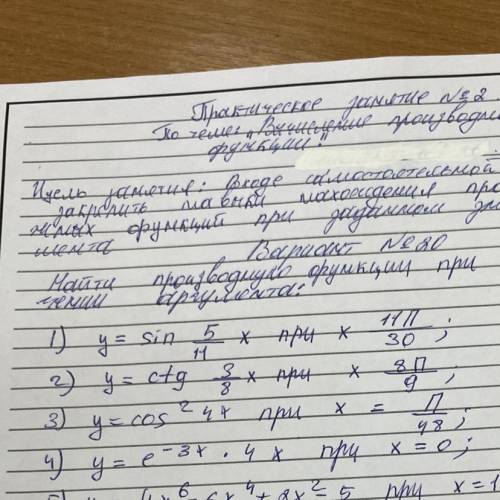 Практическое занятие №2
По теме: "Вычисление производн
функции."
Цель занятия: Входе самостоятельной
закрепить навыки нахождения про
ных функций при заданном зн
мента
Вариант №20
Найти производную функции при
чении аргумента:
1) y = sin 5/11 x при x 11П/30;
2) y = ctg 3/8 x при x 8П/9;
3) y = cos² 4x при x = П/48;
4) y = e⁻³ˣ · 4x при x = 0;